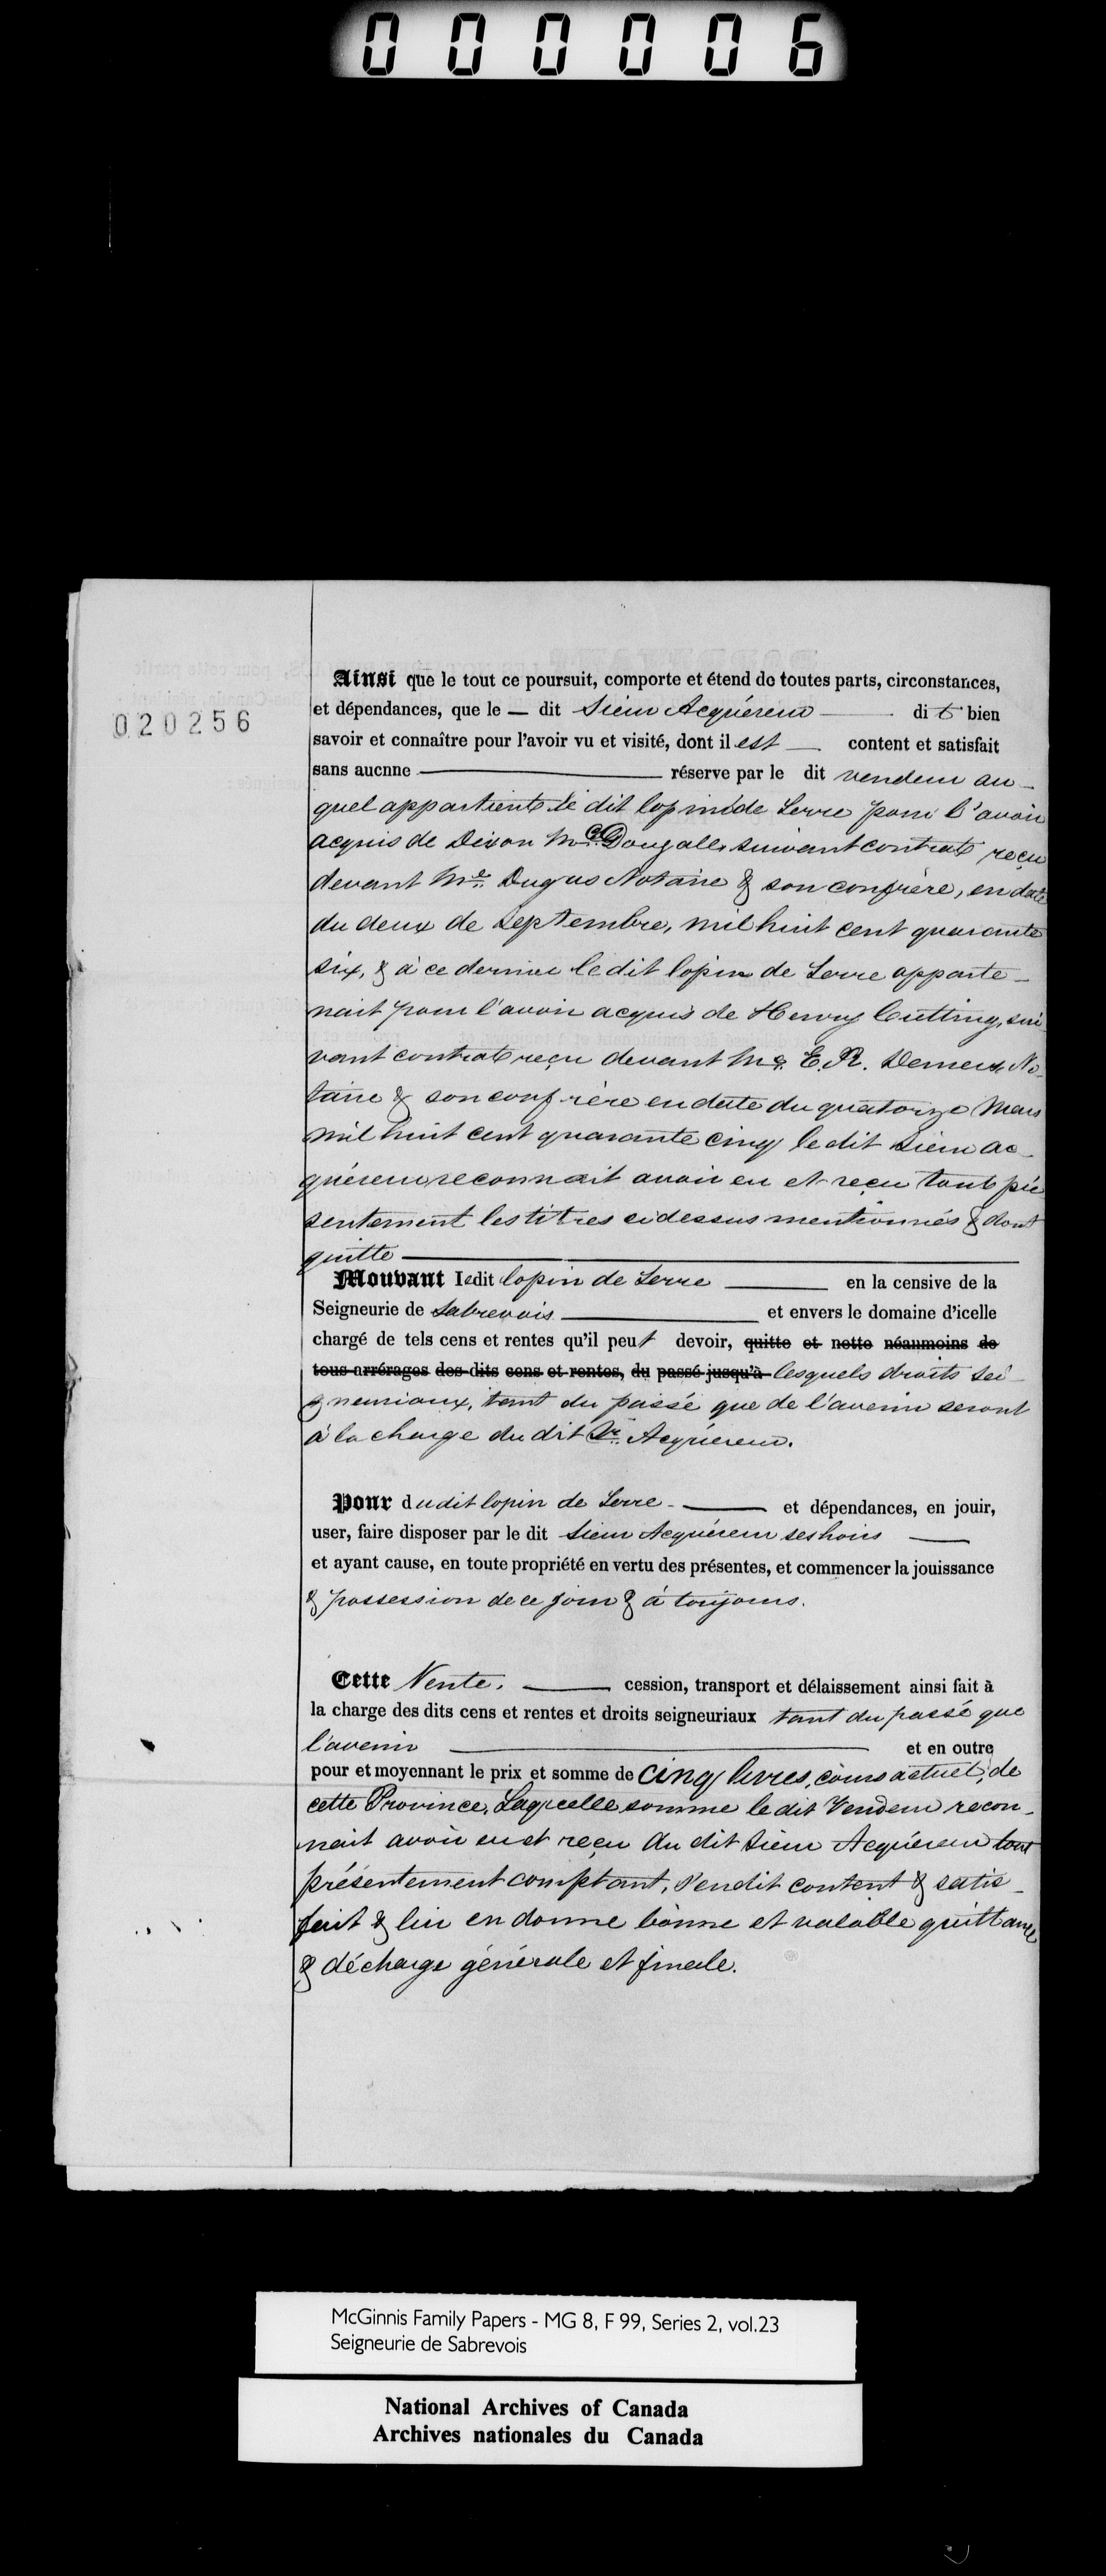 000006
020256
Ainsi que le tout ce poursuit, comporte et étend de toutes parts, circonstances,
et dépendances, que le — dit Sieur Acquéreur —— dit bien
savoir et connaître pour l'avoir vu et visité, dont il est —— content et satisfait
sans aucnne —— réserve par le dit vendeur au-
quel appartient le dit lopin de Terre pour l'avoir
acquis de Dixon McDougall, suivant contrat reçu
devant Me. Dugas Notaire & son confrère, en date
du deux de Septembre, mil huit cent quarante
six, & à ce dernier ledit lopin de Terre apparte-
nait pour l'avoir acquis de Henry Cutting, sui-
vant contrat reçu devant Me. E.R. Demers, No-
taire & son confrère en date du quatorze Mars
mil huit cent quarante cinq le dit Sieur ac-
quéreur reconnait avoir eu et reçu tout pré
sentement les titres cidessus mentionnés & dont
quitte ——
Mouvant ledit lopin de Terre —— en la censive de la
Seigneurie de Sabrevois —— et envers le domaine d'icelle
chargé de tels cens et rentes qu'il peut devoir, quitte et nette néanmoins de
tous arrérages des dits cens et rentes, du passé jusqu'à lesquels droits sei-
gneuriaux, tant du passé que de l'avenir seront
à la charge du dit Sr. Acquéreur.
Pour dudit lopin de Terre —— et dépendances, en jouir,
user, faire disposer par le dit Sieur Acquéreur ses hoirs ——
et ayant cause, en toute propriété en vertu des présentes, et commencer la jouissance
& possession de ce jour & à toujours.
Cette Vente, —— cession, transport et délaissement ainsi fait à
la charge des dits cens et rentes et droits seigneuriaux tant du passé que
l'avenir —— et en outre
pour et moyennant le prix et somme de cinq livres, cours actuel, de
cette Province, Laquelle somme le dit Vendeur recon-
nait avoir eu et reçu du dit Sieur Acquéreur tout
présentement comptant, s'en dit content & satis-
fait & lui en donne bonne et valable quittance
& décharge générale et finale.
McGinnis Family Papers - MG 8, F 99, Series 2, vol.23
Seigneurie de Sabrevois
National Archives of Canada
Archives nationales du Canada